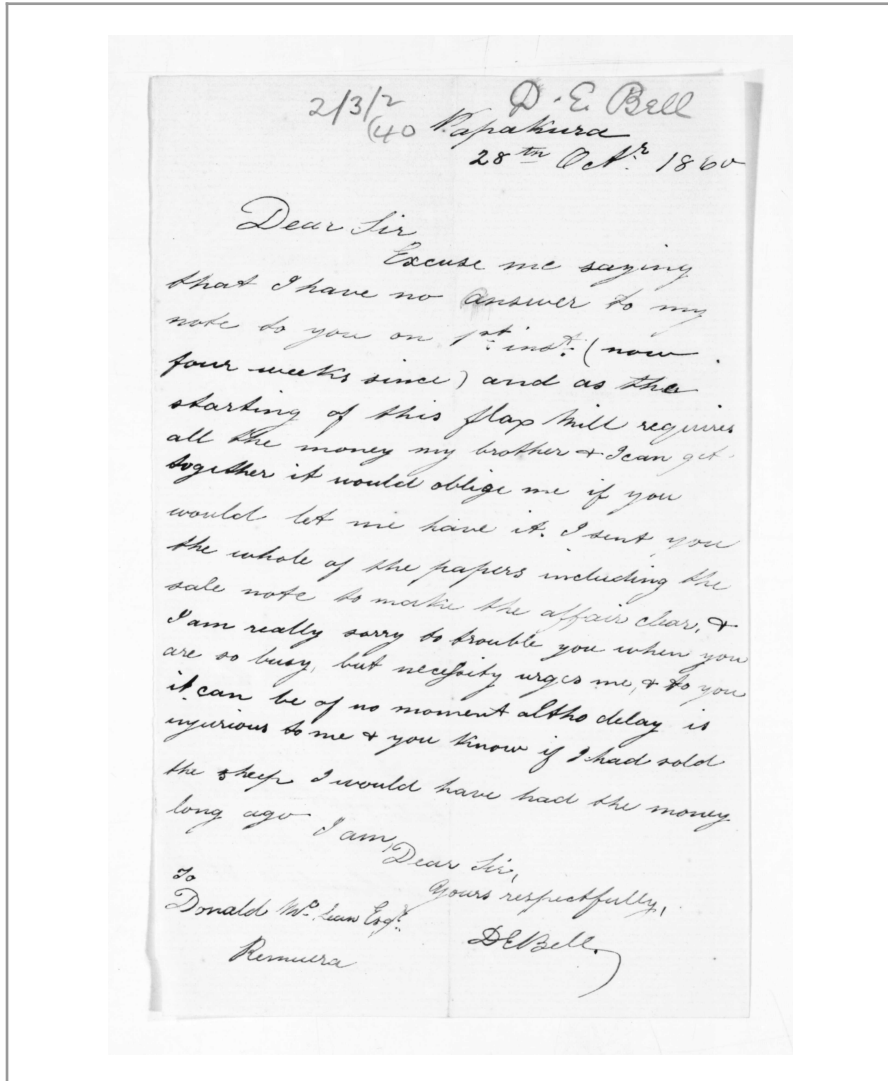 2/3/2
(40
D. E. Bell
Papakura
28th Octr. 1860
Dear Sir
Excuse me saying
that I have no answer to my
note to you on 1st. inst. (now
four weeks since) and as the
starting of this flax Mill requires
all the money my brother & I can get
together it would oblige me if you
would let me have it. I sent you
the whole of the papers including the
sale note to make the affair clear, &
I am really sorry to trouble you when you
are so busy, but necessity urges me, & to you
it can be of no moment altho delay is
injurious to me & you know if I had sold
the sheep I would have had the money
long ago I am,
Dear Sir,
Yours respectfully,
DEBell.
To
Donald McLean Esqr.
Remuera